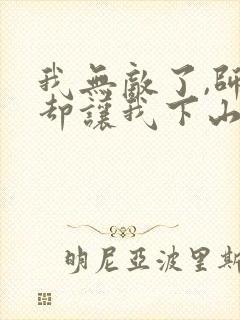 我無敵了,師
却讓我下山
明尼亞波里斯